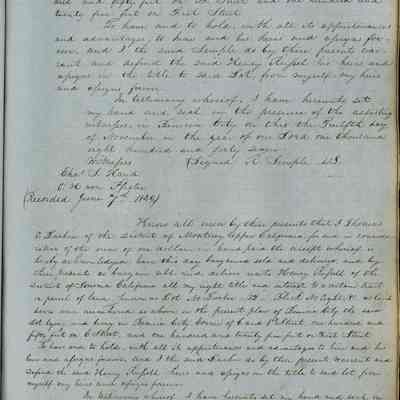 and eighty feet on D Street and one hundred and
twenty five feet on First Street
To have and to hold, with all its appurtenances
and advantages to him and his heirs and assigns for-
ever, and I the said Semple do by these presents war-
rant and defend the said Henry his heirs and
assigns in the title to said Lot, from myself my heirs
and assigns forever.
In testimony whereof, I have hereunto set
my hand and seal in the presence of the attesting
witnesses in Benicia City on this the Twelfth day
of November in the year of our Lord one thousand
eight hundred and forty seven
Witnesses (Signed R. Semple
Chas. S.
(Recorded June 7th
Know all men by these presents that I Thomas
O. Larkin of the District of Monterey Upper California for and in consid-
eration of the sum of one dollar in hand paid the receipt whereof is
hereby acknowledged, have this day bargained sold and delivered, and by
these presents do bargain sell and deliver unto Henry of the
District of Sonoma California all my right title and interest to a certain tract
or parcel of land, known as Lot Block
been one numbered is shown in the present plan of Benicia City the said
lot lying and being in Benicia City corner of and First Street one hundred and
fifty feet on Street, and one hundred and twenty five feet on First Street
To have and to hold, with all its appurtenances and advantages to him and his
heirs and assigns forever. And I the said Larkin do by these presents warrant and
defend the said Henry heirs and assigns in the title to said lot from
myself my heirs and assigns forever
In testimony whereof I have hereunto set my hand and seal in